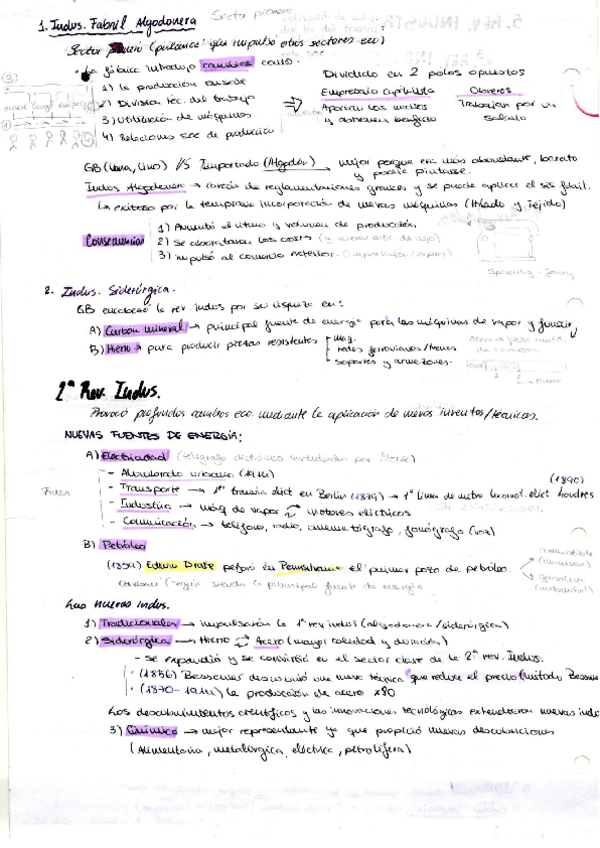 1. Indus. Fabril Algodonera
Sector pionero
Sector pionero (palanca q impulsó otros sectores eco)
• La fábrica introdujo cambios como:
1) la producción
2) División téc. del trabajo
3) Utilización de máquinas
4) Relaciones soc de producción
⇒
Dividido en 2 polos opuestos
Empresario capitalista
Obreros
Aportan los medios y obtienen beneficio
Trabajan por un salario
GB (lana, lino) // Importado (Algodón) → mejor porque era más abundante, barato
y podía pintarse.
Indus Algodonera → carecía de reglamentaciones gremiales y se puede aplicar el sis fabril.
↳ exitoso por la temprana incorporación de nuevas máquinas (Hilado y Tejido)
Consecuencias
1) Aumentó el ritmo y volumen de producción
2) Se abarataron los costes
3) impulsó al comercio exterior.
Spinning - Jenny
2. Indus. Siderúrgica.
GB encabezó la rev. indus por su riqueza en:
A) Carbón mineral → principal fuente de energía para las máquinas de vapor y fundir
B) Hierro → para producir piezas resistentes
maq.
redes ferroviarias/trenes
soportes y armazones.
Hierro
2ª Rev. Indus.
Provocó profundos cambios eco. mediante la aplicación de nuevos inventos/técnicas.
NUEVAS FUENTES DE ENERGÍA:
A) Electricidad (telégrafo eléctrico inventado por Morse)
- Alumbrado urbano
- Transporte → 1er tranvía eléct en Berlín (1879) → 1ª línea de metro locomot. eléct Londres (1890)
- Industria → máq de vapor ⇄ motores eléctricos
- Comunicación → teléfono, radio, cinematógrafo, fonógrafo (voz)
B) Petróleo
Edwin Drake perforó en Pensilvania el primer pozo de petróleo.
combustible
gasolina
(automóvil)
Carbón! (seguía siendo la principal fuente de energía
Las nuevas indus.
1) Tradicionales → impulsarán la 1ª rev indus (algodonera/siderúrgica)
2) Siderúrgica → Hierro ⇄ Acero (mayor calidad y duración)
- se expandió y se convirtió en el sector clave de la 2ª rev. Indus.
• (1856) Bessemer descubrió una nueva técnica que reduce el precio (método Bessem
• (1870-1914) la producción de acero x80
Los descubrimientos científicos y las innovaciones tecnológicas extendieron nuevas indu
3) Química → mejor representante ya que propició nuevas
(Alimentaria, metalúrgica, eléctrica, petrolífera)